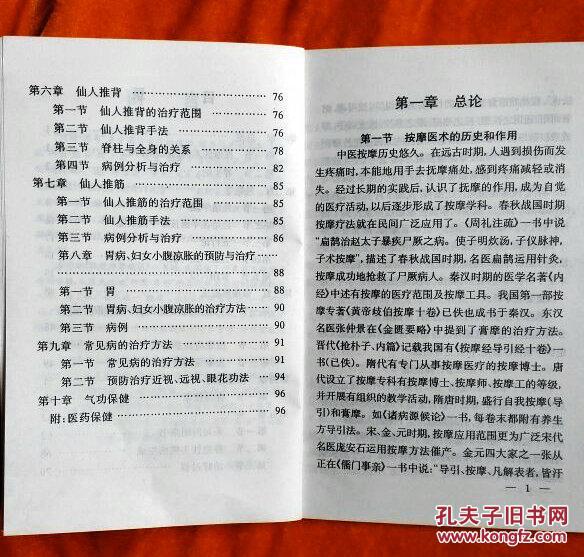 第六章 仙人推背 …… 76
第一节 仙人推背的治疗范围 …… 76
第二节 仙人推背手法 …… 76
第三节 脊柱与全身的关系 …… 78
第四节 病例分析与治疗 …… 82
第七章 仙人推筋 …… 85
第一节 仙人推筋的治疗范围 …… 85
第二节 仙人推筋手法 …… 85
第三节 病例分析与治疗 …… 86
第八章 胃病、妇女小腹凉胀的预防与治疗 ……
…… 88
第一节 胃 …… 88
第二节 胃病、妇女小腹凉胀的治疗方法 …… 90
第三节 病例 …… 90
第九章 常见病的治疗方法 …… 91
第一节 常见病的治疗方法 …… 91
第二节 预防治疗近视、远视、眼花功法 …… 94
第十章 气功保健 …… 96
附:医药保健 …… 96
第一章 总论
第一节 按摩医术的历史和作用
中医按摩历史悠久。在远古时期,人遇到损伤而发
生疼痛时,本能地用手去抚摩痛处,感到疼痛减轻或消
失。经过长期的实践后,认识了抚摩的作用,成为自觉
的医疗活动,以后逐步形成了按摩学科。春秋战国时期
按摩疗法就在民间广泛应用了。《周礼注疏》一书中说
“扁鹊治赵太子暴疾尸厥之病。使子明炊汤,子仪脉神,
子术按摩”,描述了春秋战国时期,名医扁鹊运用针灸、
按摩成功地抢救了尸厥病人。秦汉时期的医学名著《内
经》中述有按摩的医疗范围及按摩工具。我国第一部按
摩专著《黄帝歧伯按摩十卷》已佚也成书于秦汉。东汉
名医张仲景在《金匮要略》中提到了膏摩的治疗方法。
晋代《抢朴子、内篇》记载我国有《按摩经导引经十卷》一
书(已佚)。隋代有专门从事按摩医疗的按摩博士。唐
代设立了按摩专科有按摩博士、按摩师、按摩工的等级,
并开展有组织的教学活动,隋唐时期,盛行自我按摩(导
引)和膏摩。如《诸病源候论》一书,每卷末都附有养生
方导引法。宋、金、元时期,按摩应用范围更为广泛宋代
名医庞安石运用按摩方法催产。金元四大家之一张从
正在《儒门事亲》一书中说:“导引、按摩、凡解表者,皆汗
— 1 —
孔夫子旧书网